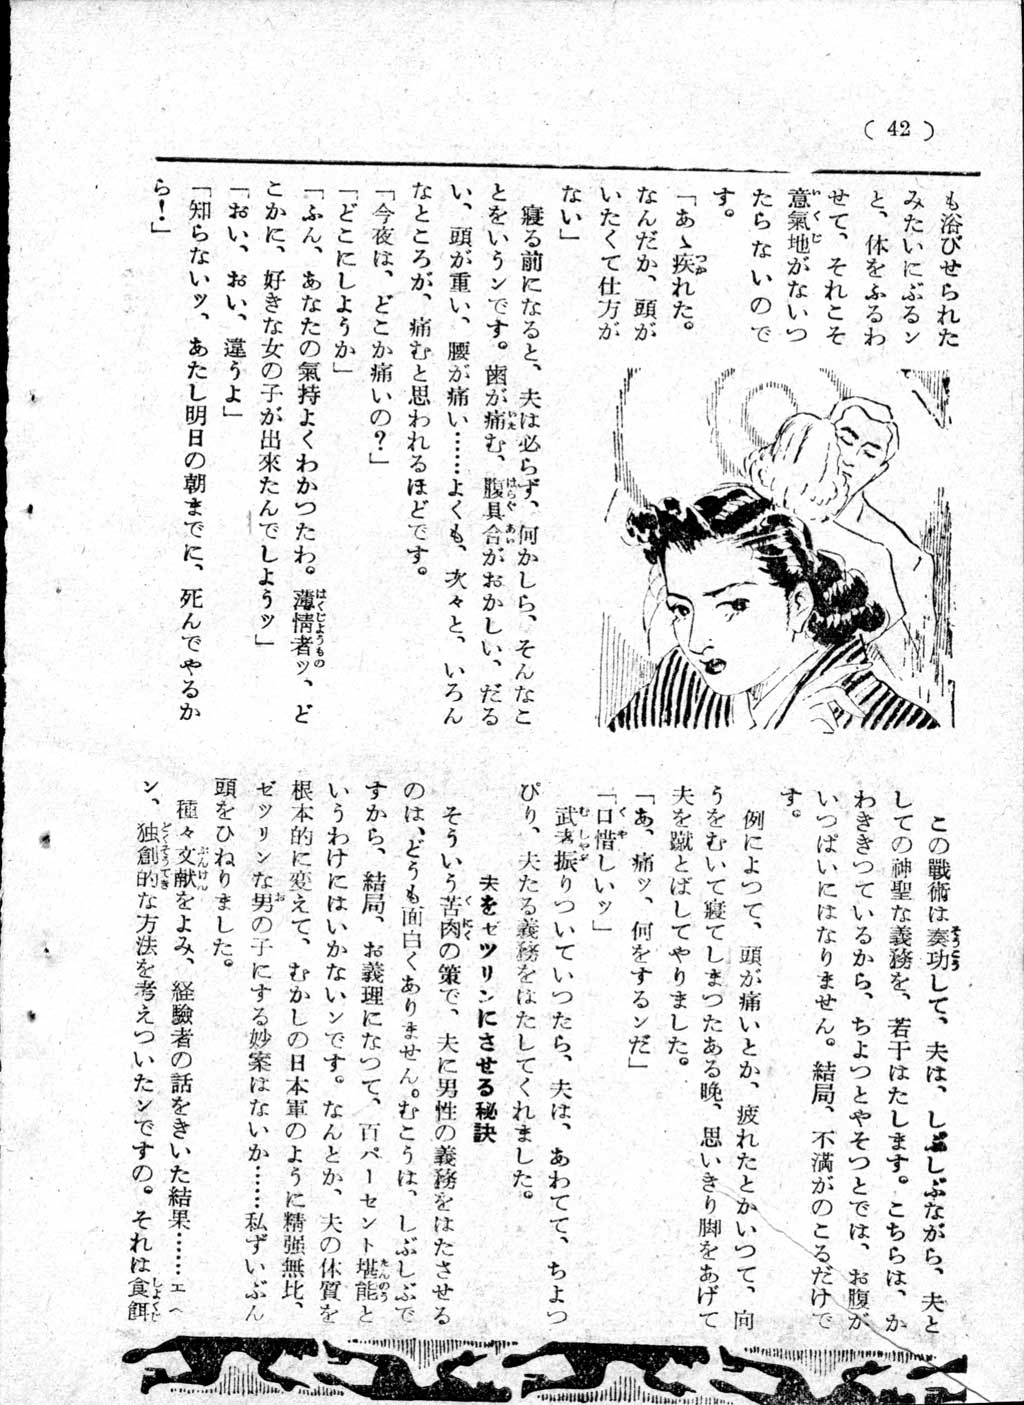 ( 42 )
も浴びせられた
みたいにぶるン
と、体をふるわ
せて、それこそ
意氣地がないつ
たらないので
す。
「あゝ疾れた。
なんだか、頭が
いたくて仕方が
ない」
寢る前になると、夫は必らず、何かしら、そんなこ
とをいうンです。歯が痛む、腹具合がおかしい、だる
い、頭が重い、腰が痛い……よくも、次々と、いろん
なところが、痛むと思われるほどです。
「今夜は、どこか痛いの？」
「どこにしようか」
「ふん、あなたの氣持よくわかつたわ。薄情者ッ、ど
こかに、好きな女の子が出來たんでしようッ」
「おい、おい、違うよ」
「知らないッ、あたし明日の朝までに、死んでやるか
ら！」
この戰術は奏功して、夫は、しぶしぶながら、夫と
しての神聖な義務を、若干はたします。こちらは、か
わききつているから、ちよつとやそつとでは、お腹が
いつぱいにはなりません。結局、不満がのこるだけで
す。
例によつて、頭が痛いとか、疲れたとかいつて、向
うをむいて寢てしまつたある晩、思いきり脚をあげて
夫を蹴とばしてやりました。
「あ、痛ッ、何をするンだ」
「口惜しいッ」
武者振りついていつたら、夫は、あわてて、ちよつ
ぴり、夫たる義務をはたしてくれました。
夫をゼツリンにさせる秘訣
そういう苦肉の策で、夫に男性の義務をはたさせる
のは、どうも面白くありません。むこうは、しぶしぶで
すから、結局、お義理になつて、百パーセント堪能と
いうわけにはいかないンです。なんとか、夫の体質を
根本的に変えて、むかしの日本軍のように精强無比、
ゼツリンな男の子にする妙案はないか……私ずいぶん
頭をひねりました。
種々文献をよみ、経驗者の話をきいた結果……エヘ
ン、独創的な方法を考えついたンですの。それは食餌